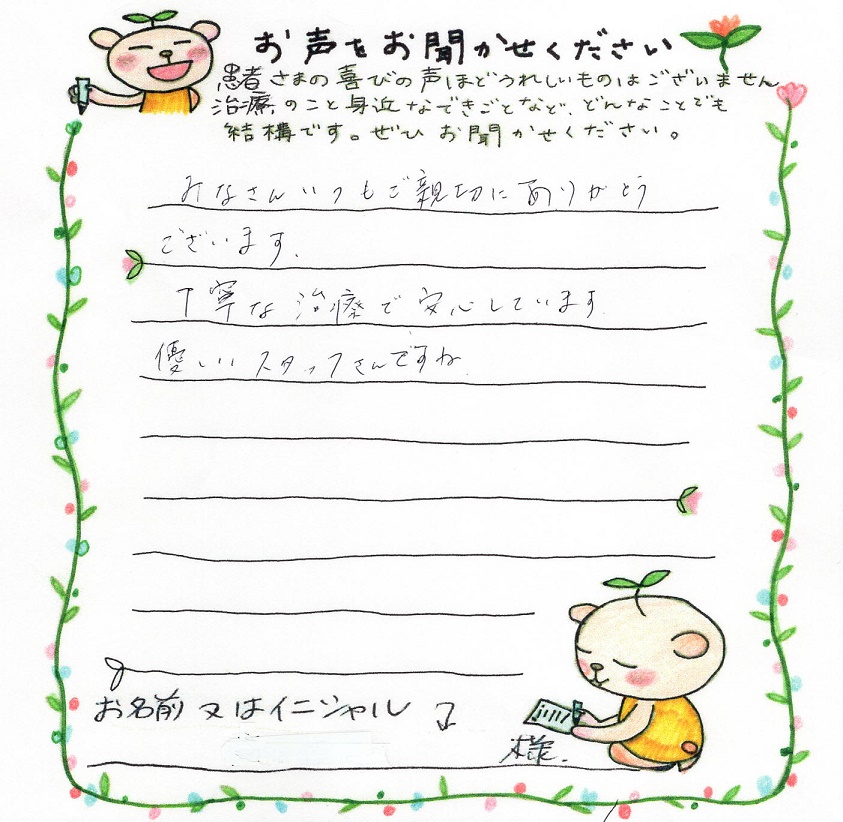 お声をお聞かせください
患者さまの喜びの声ほどうれしいものはございません
治療のこと身近なできごとなど、どんなことでも
結構です。ぜひお聞かせください。
みなさんいつもご親切にありがとう
ございます.
丁寧な治療で安心しています
優しいスタッフさんですね.
お名前又はイニシャル
様.